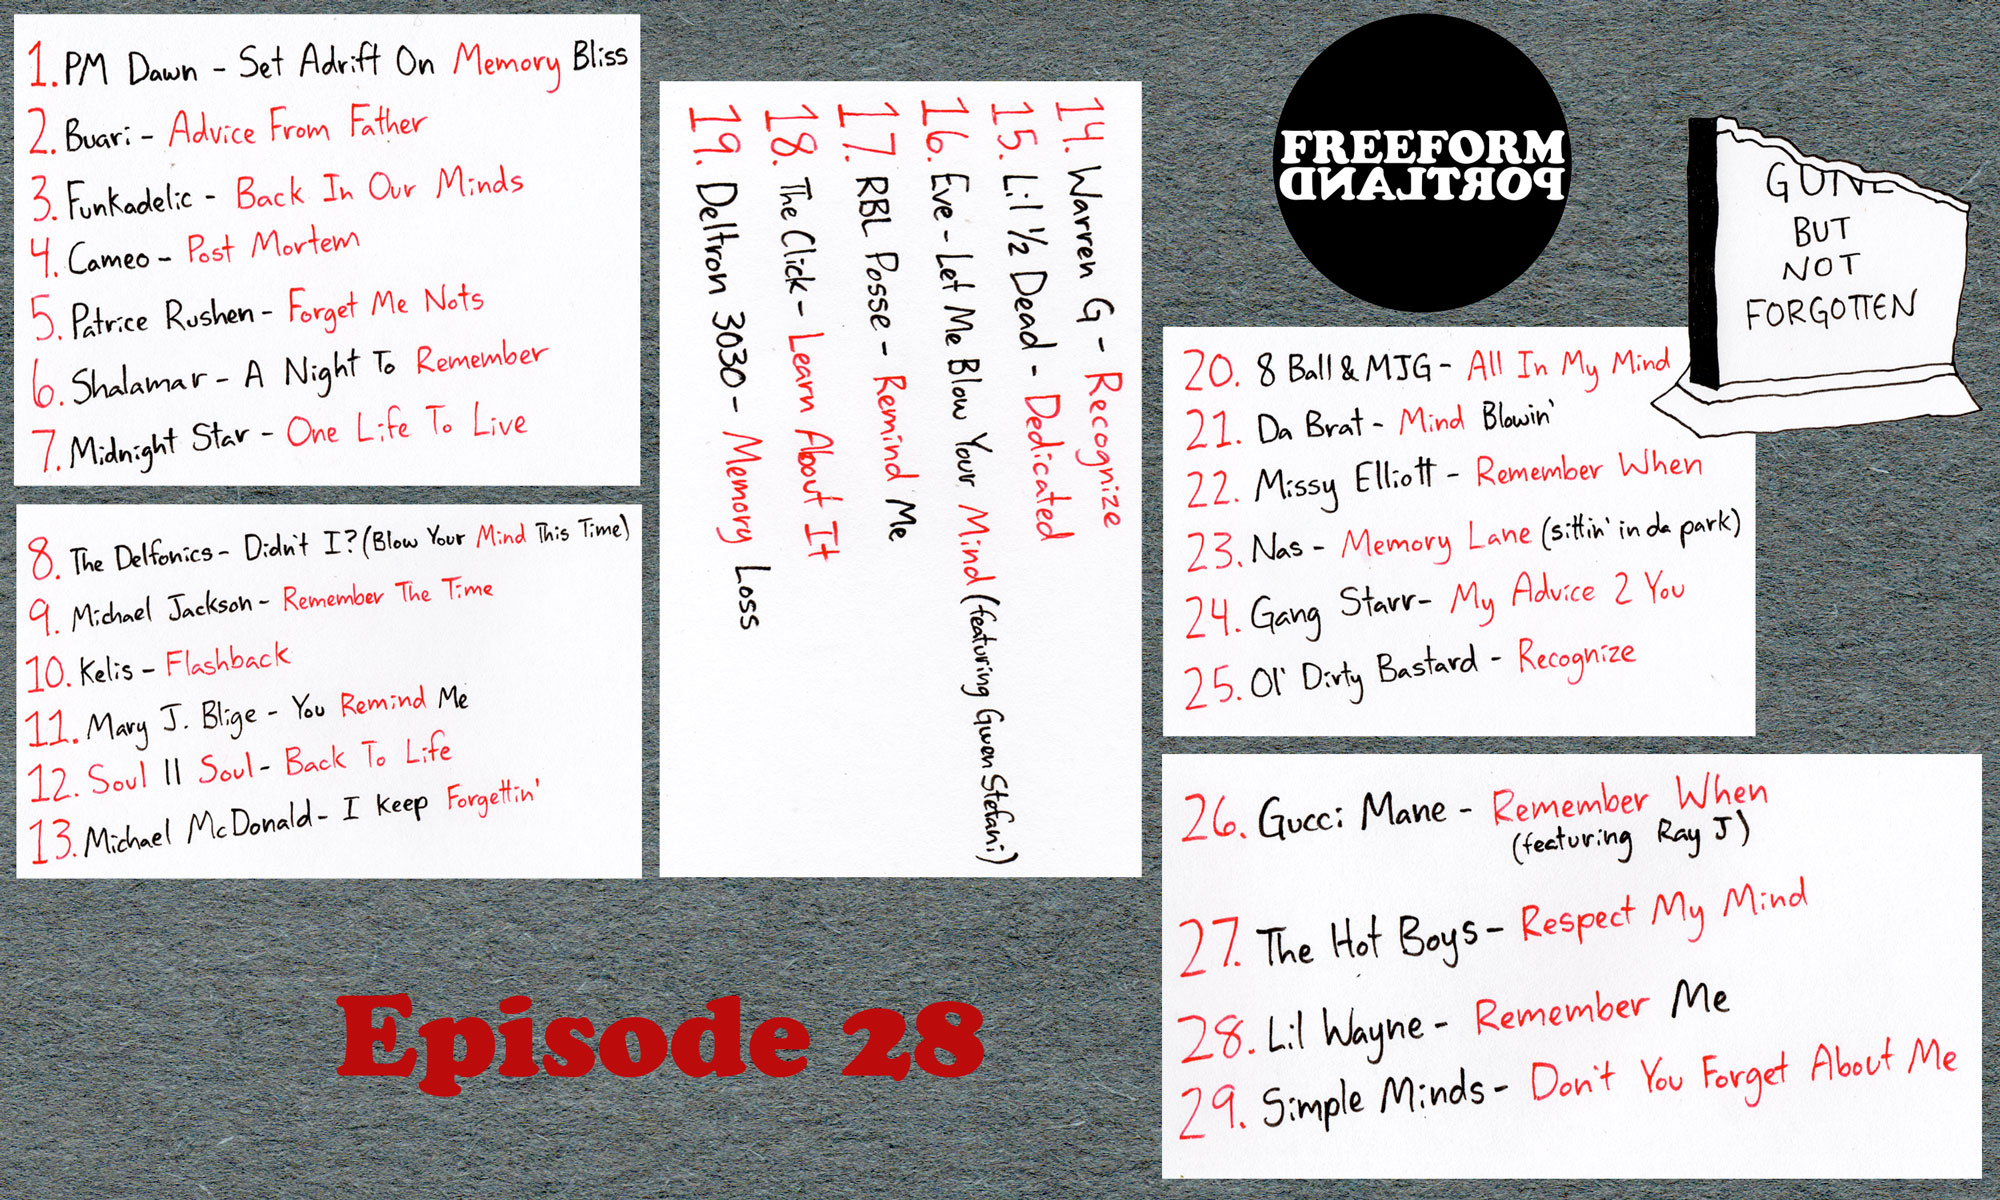 1. PM Dawn - Set Adrift On Memory Bliss
2. Buari - Advice From Father
3. Funkadelic - Back In Our Minds
4. Cameo - Post Mortem
5. Patrice Rushen - Forget Me Nots
6. Shalamar - A Night To Remember
7. Midnight Star - One Life To Live
8. The Delfonics - Didn't I? (Blow Your Mind This Time)
9. Michael Jackson - Remember The Time
10. Kelis - Flashback
11. Mary J. Blige - You Remind Me
12. Soul II Soul - Back To Life
13. Michael McDonald - I Keep Forgettin'
14. Warren G - Recognize
15. Lil 1/2 Dead - Dedicated
16. Eve - Let Me Blow Your Mind (featuring Gwen Stefani)
17. RBL Posse - Remind Me
18. The Click - Learn About It
19. Deltron 3030 - Memory Loss
FREEFORM
PORTLAND
GONE
BUT
NOT
FORGOTTEN
20. 8 Ball & MJG - All In My Mind
21. Da Brat - Mind Blowin'
22. Missy Elliott - Remember When
23. Nas - Memory Lane (sittin' in da park)
24. Gang Starr - My Advice 2 You
25. Ol' Dirty Bastard - Recognize
26. Gucci Mane - Remember When
(featuring Ray J)
27. The Hot Boys - Respect My Mind
28. Lil Wayne - Remember Me
29. Simple Minds - Don't You Forget About Me
Episode 28